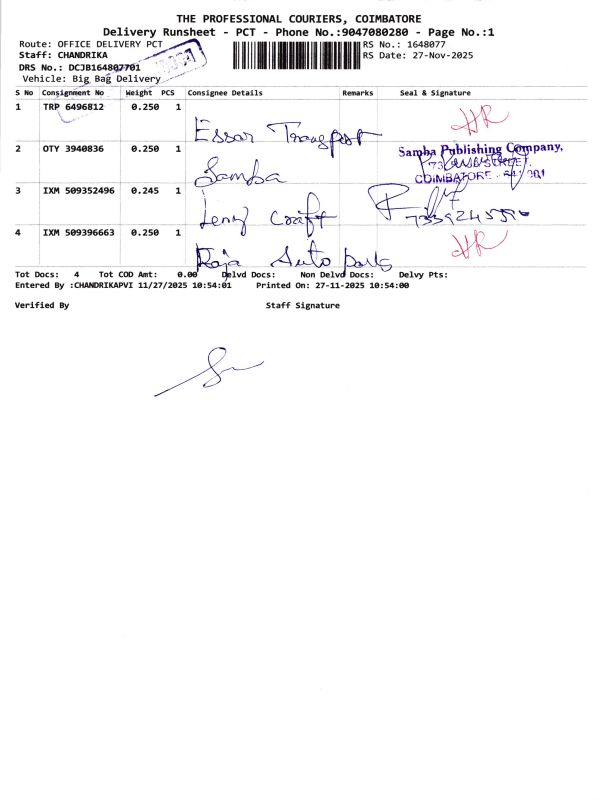 THE PROFESSIONAL COURIERS, COIMBATORE
Delivery Runsheet - PCT - Phone No.:9047080280 - Page No.:1
Route: OFFICE DELIVERY PCT
RS No.: 1648077
Staff: CHANDRIKA
RS Date: 27-Nov-2025
DRS No.: DCJB164807701
Vehicle: Big Bag Delivery
S No Consignment No Weight PCS Consignee Details Remarks Seal & Signature
1 TRP 6496812 0.250 1 Essar Transport HR
2 OTY 3940836 0.250 1 Samba
Samba Publishing Company,
COIMBATORE
3 IXM 509352496 0.245 1 Leny Craft
4 IXM 509396663 0.250 1 Raja Auto parts HR
Tot Docs: 4 Tot COD Amt: 0.00 Delvd Docs: Non Delvd Docs: Delvy Pts:
Entered By :CHANDRIKAPVI 11/27/2025 10:54:01 Printed On: 27-11-2025 10:54:00
Verified By Staff Signature